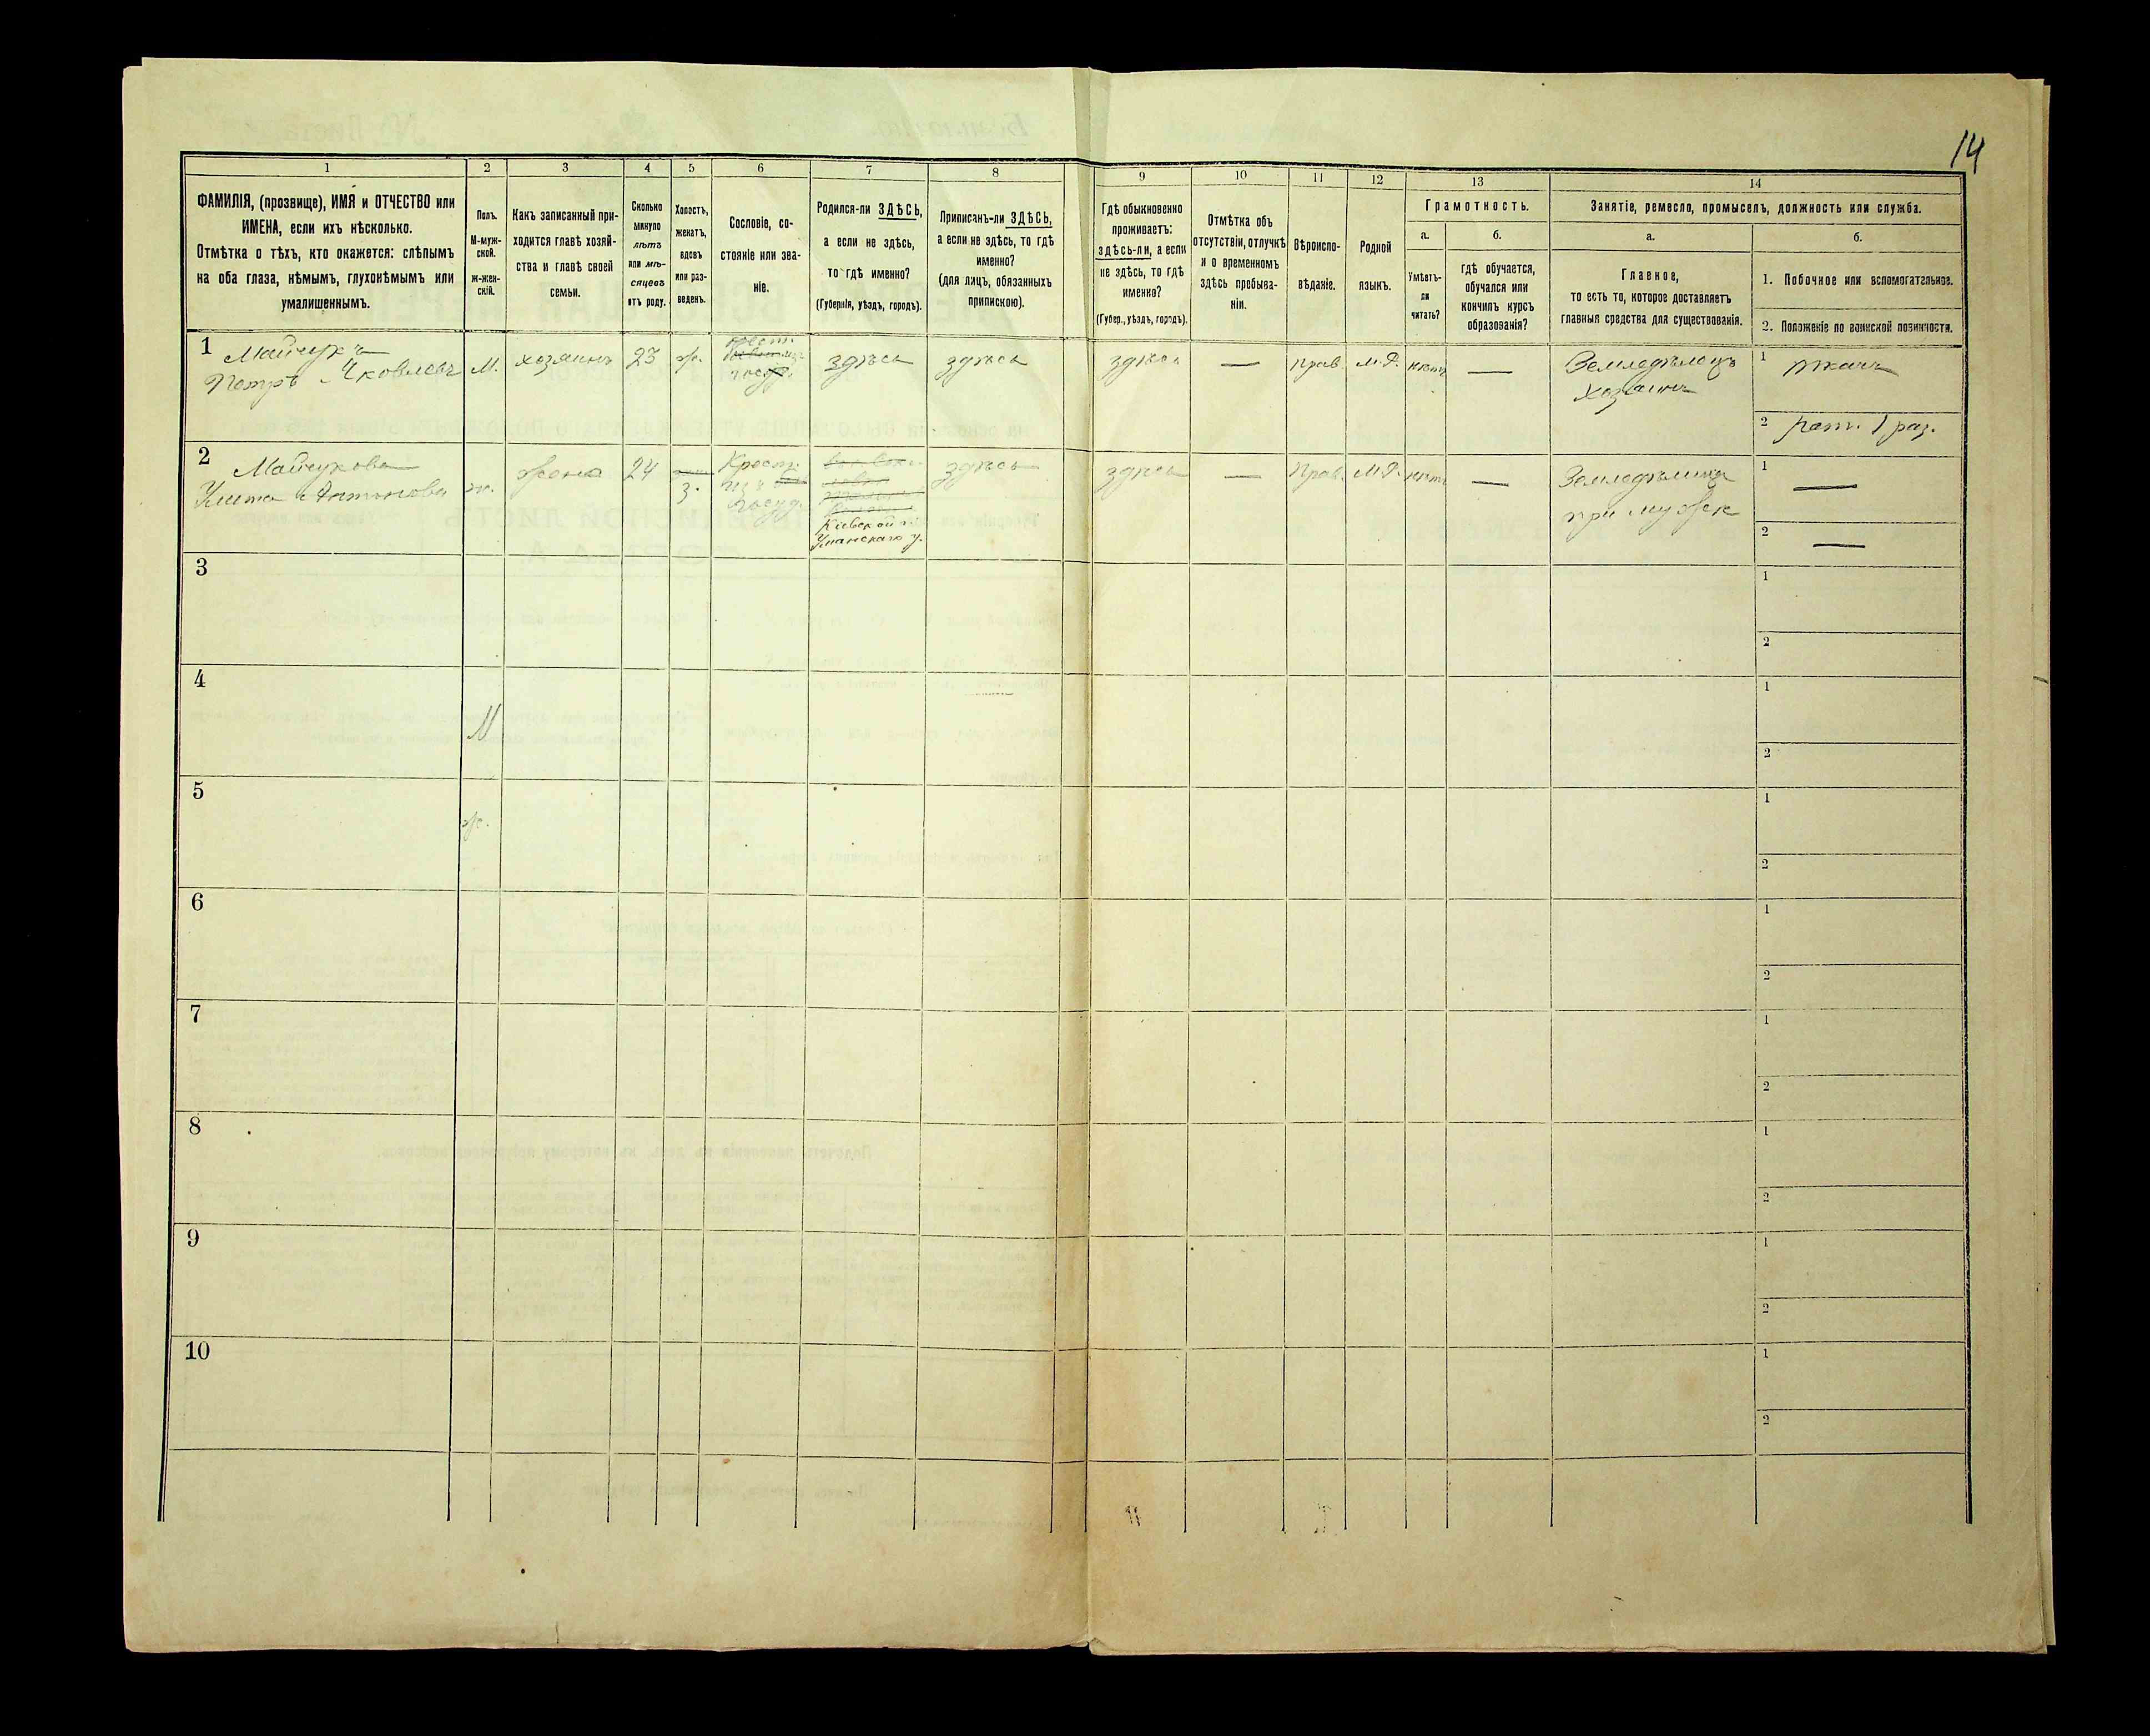 14
1
2
3
4
5
6
7
8
9
10
11
12
13
14
ФАМИЛІЯ, (прозвище), ИМЯ и ОТЧЕСТВО или
ИМЕНА, если ихъ нѣсколько.
Отмѣтка о тѣхъ, кто окажется: слѣпымъ
на оба глаза, нѣмымъ, глухонѣмымъ или
умалишеннымъ.
Полъ.
М-муж-
ской.
ж-жен-
скій.
Какъ записанный при-
ходится главѣ хозяй-
ства и главѣ своей
семьи.
Сколько
минуло
лѣтъ
или мѣ-
сяцевъ
отъ роду.
Холостъ,
женатъ,
вдовъ
или раз-
веденъ.
Сословіе, со-
стояніе или зва-
ніе.
Родился-ли ЗДѢСЬ,
а если не здѣсь,
то гдѣ именно?
(Губернія, уѣздъ, городъ).
Приписанъ-ли ЗДѢСЬ,
а если не здѣсь, то гдѣ
именно?
(для лицъ, обязанныхъ
припискою).
Гдѣ обыкновенно
проживаетъ:
здѣсь-ли, а если
не здѣсь, то гдѣ
именно?
(Губер., уѣздъ, городъ).
Отмѣтка объ
отсутствіи, отлучкѣ
и о временномъ
здѣсь пребыва-
ніи.
Вѣроиспо-
вѣданіе.
Родной
языкъ.
Грамотность.
а.
Умѣетъ-
ли
читать?
б.
гдѣ обучается,
обучался или
кончилъ курсъ
образованія?
Занятіе, ремесло, промыселъ, должность или служба.
а.
Главное,
то есть то, которое доставляетъ
главныя средства для существованія.
б.
1. Побочное или вспомогательное.
2. Положеніе по воинской повинности.
1
Петръ Яковлевъ
М.
хозяинъ
23
ж.
крест.
здѣсь
здѣсь
здѣсь
—
Прав.
М.Р.
нѣтъ
—
Земледѣлецъ
хозяинъ
1 ткачъ
2 рат. 1 раз.
2
Антонова
ж.
жена
24
з.
Крест.
изъ
госуд.
Кіевской г.
Уманскаго у.
здѣсь
здѣсь
—
Прав.
М.Р.
нѣтъ
—
при мужѣ
1 —
2 —
3
1
2
4
М
1
2
5
ж.
1
2
6
1
2
7
1
2
8
1
2
9
1
2
10
1
2